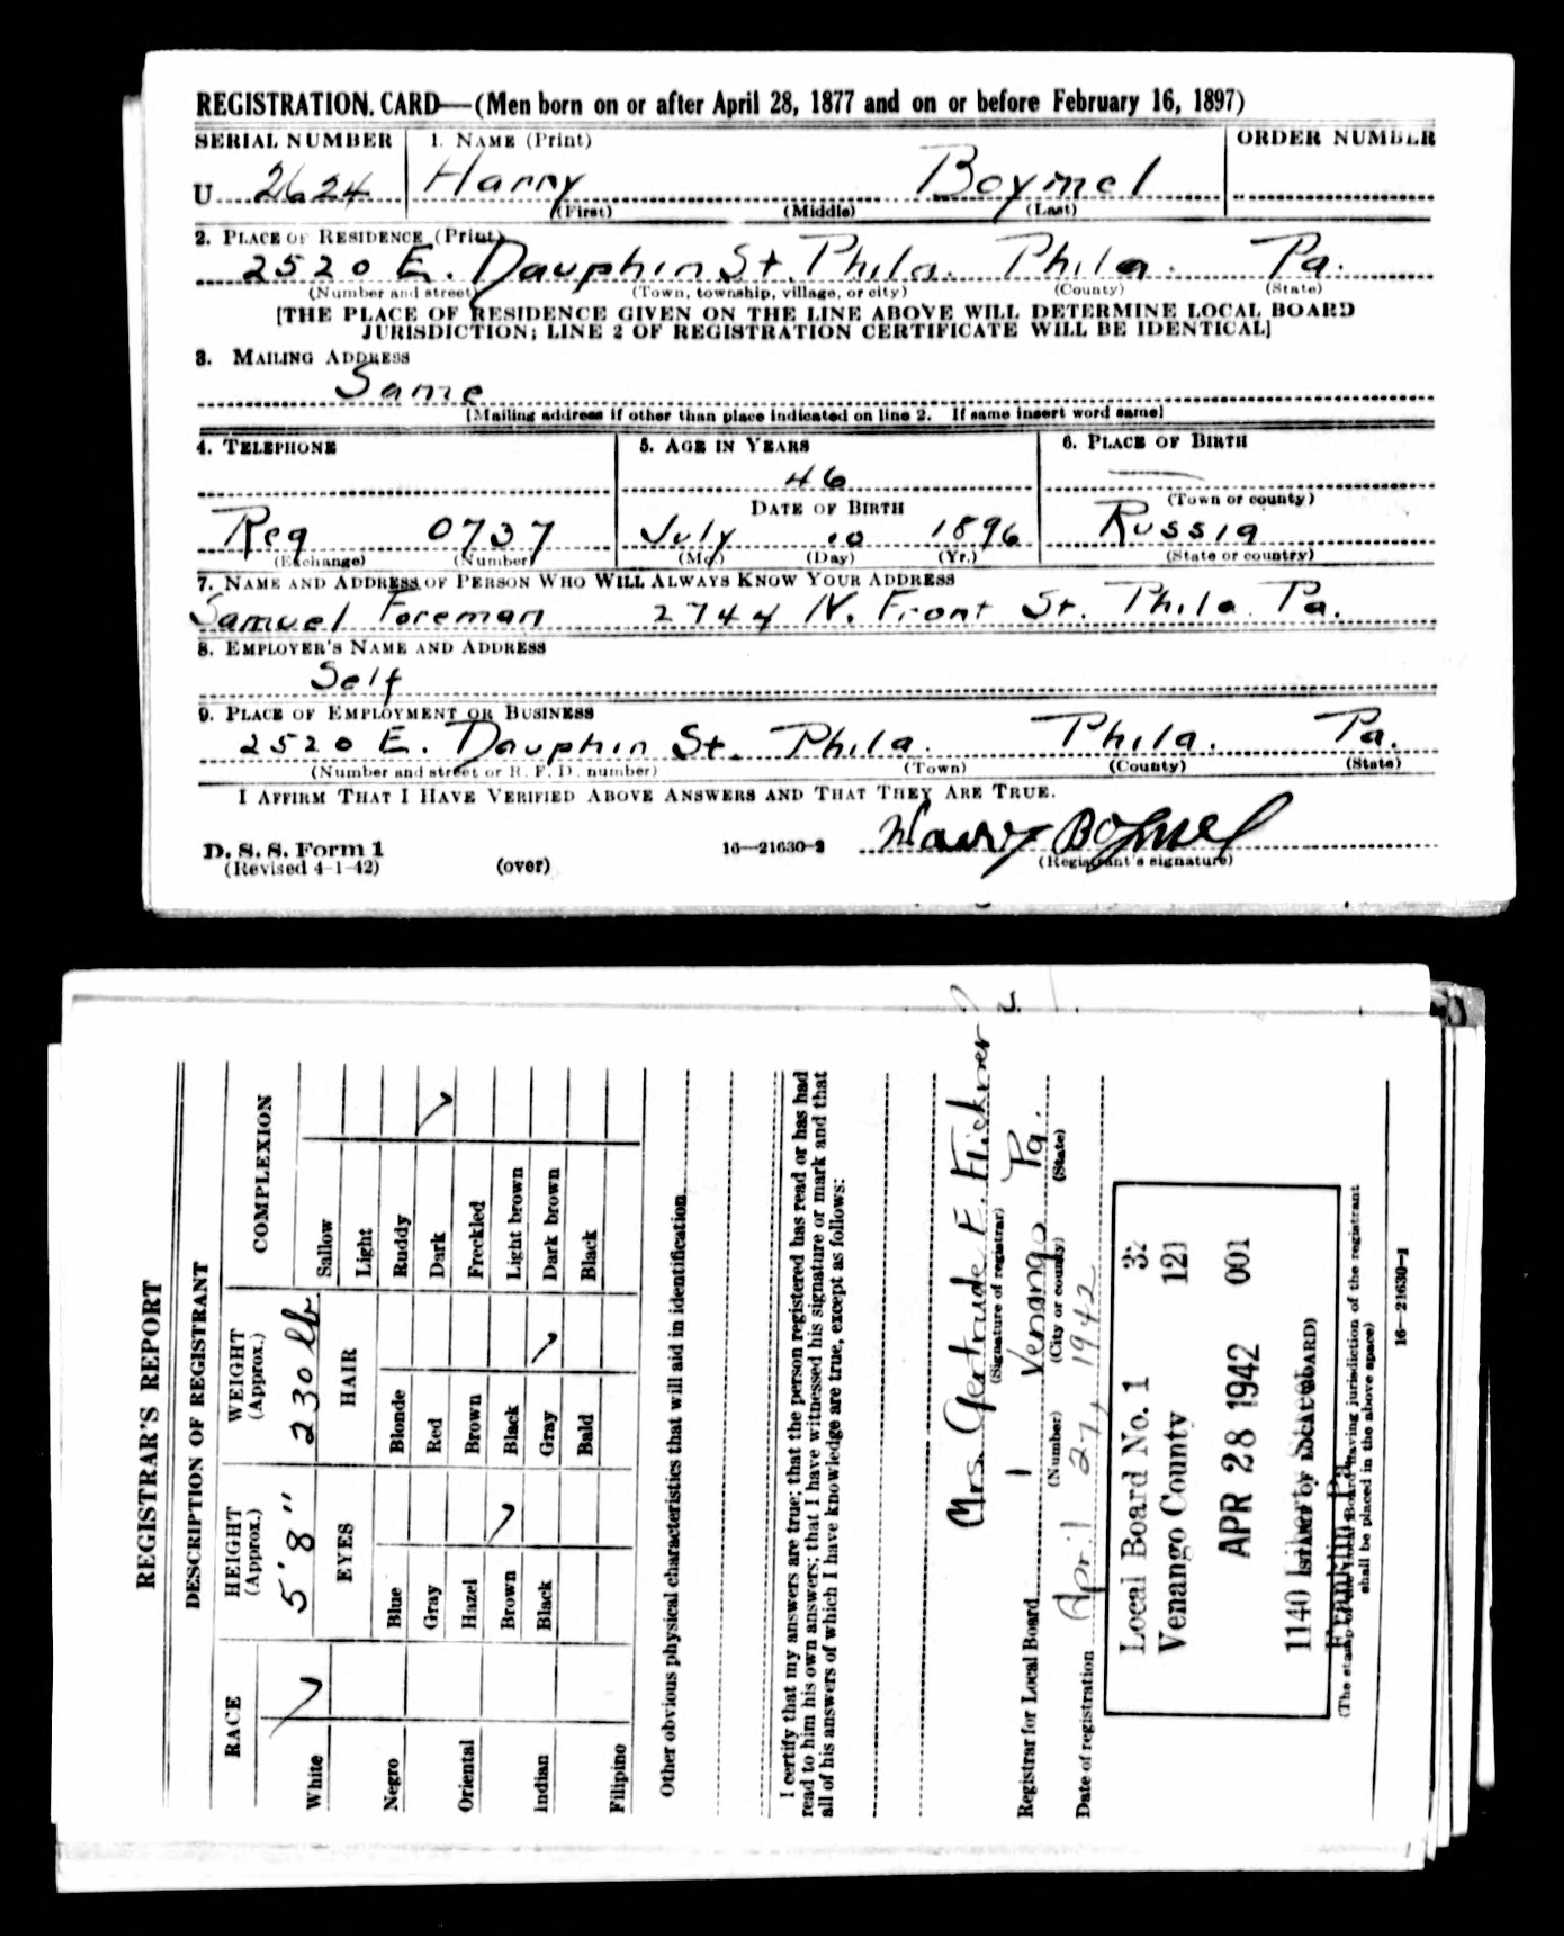 REGISTRATION CARD—(Men born on or after April 28, 1877 and on or before February 16, 1897)
SERIAL NUMBER 1. NAME (Print) ORDER NUMBER
U 2624 Harry Boymel
(First) (Middle) (Last)
2. PLACE OF RESIDENCE (Print)
2520 E. Dauphin St. Phila. Phila. Pa.
(Number and street) (Town, township, village, or city) (County) (State)
[THE PLACE OF RESIDENCE GIVEN ON THE LINE ABOVE WILL DETERMINE LOCAL BOARD
JURISDICTION; LINE 2 OF REGISTRATION CERTIFICATE WILL BE IDENTICAL]
3. MAILING ADDRESS
Same
[Mailing address if other than place indicated on line 2. If same insert word same]
4. TELEPHONE 5. AGE IN YEARS 6. PLACE OF BIRTH
46
DATE OF BIRTH (Town or county)
Reg 0737 July 10 1896 Russia
(Exchange) (Number) (Mo.) (Day) (Yr.) (State or country)
7. NAME AND ADDRESS OF PERSON WHO WILL ALWAYS KNOW YOUR ADDRESS
Samuel Foreman 2744 N. Front St. Phila. Pa.
8. EMPLOYER'S NAME AND ADDRESS
Self
9. PLACE OF EMPLOYMENT OR BUSINESS
2520 E. Dauphin St. Phila. Phila. Pa.
(Number and street or R. F. D. number) (Town) (County) (State)
I AFFIRM THAT I HAVE VERIFIED ABOVE ANSWERS AND THAT THEY ARE TRUE.
D. S. S. Form 1 16—21630-2 Harry Boymel
(Revised 4-1-42) (over) (Registrant's signature)
REGISTRAR'S REPORT
DESCRIPTION OF REGISTRANT
RACE HEIGHT (Approx.) WEIGHT (Approx.) COMPLEXION
5' 8" 230 lb
White Sallow
EYES HAIR Light
Negro Blue Blonde Ruddy
Gray Red Dark
Oriental Hazel Brown Freckled
Brown Black Light brown
Indian Black Gray Dark brown
Bald Black
Filipino
Other obvious physical characteristics that will aid in identification
I certify that my answers are true; that the person registered has read or has had
read to him his own answers; that I have witnessed his signature or mark and that
all of his answers of which I have knowledge are true, except as follows:
Mrs. Gertrude E. Fickner
(Signature of registrar)
Registrar for Local Board 1 Venango Pa.
(Number) (City or county) (State)
Date of registration April 27, 1942
Local Board No. 1 32
Venango County 121
APR 28 1942 001
1140 Liberty Street
(STAMP OF LOCAL BOARD)
Franklin, Pa.
(The stamp of the Local Board having jurisdiction of the registrant
shall be placed in the above space)
16—21630-1